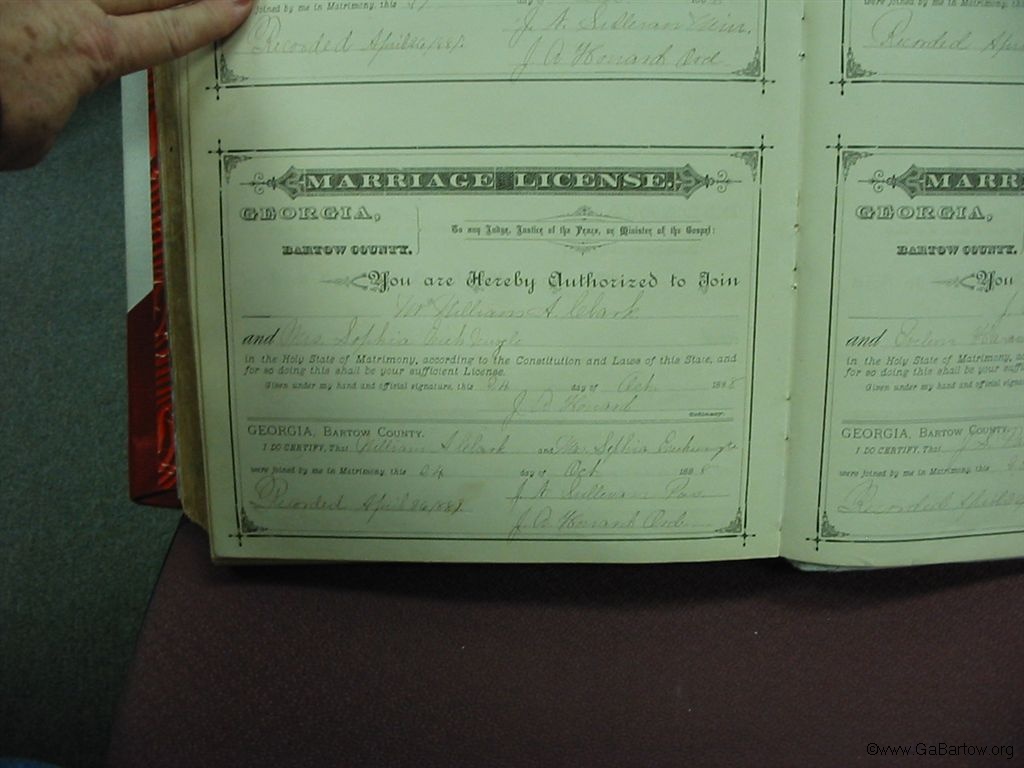 joined by me in Matrimony, this
J. A. Sullivan Min.
Recorded April 26/1889
J A Howard Ord
Recorded Apri
MARRIAGE LICENSE.
GEORGIA,
BARTOW COUNTY.
To any Judge, Justice of the Peace, or Minister of the Gospel:
You are Hereby Authorized to Join
Mr William A. Clark
and Mrs. Sophia
in the Holy State of Matrimony, according to the Constitution and Laws of this State, and
for so doing this shall be your sufficient License.
Given under my hand and official signature, this 24 day of Oct 1888
J. A Howard Ordinary.
GEORGIA, BARTOW COUNTY.
I DO CERTIFY, That William A Clark and Mrs. Sophia
were joined by me in Matrimony, this 24 day of Oct 1888
J. A. Sullivan Pas
Recorded April 26/1889
J. A. Howard Ord
MARR
GEORGIA,
BARTOW COUNTY.
You
and
in the Holy State of Matrimony, a
for so doing this shall be your suffi
Given under my hand and official signa
GEORGIA, BARTOW COUNTY.
I DO CERTIFY, That
were joined by me in Matrimony, this
Recorded April 26
©www.GaBartow.org